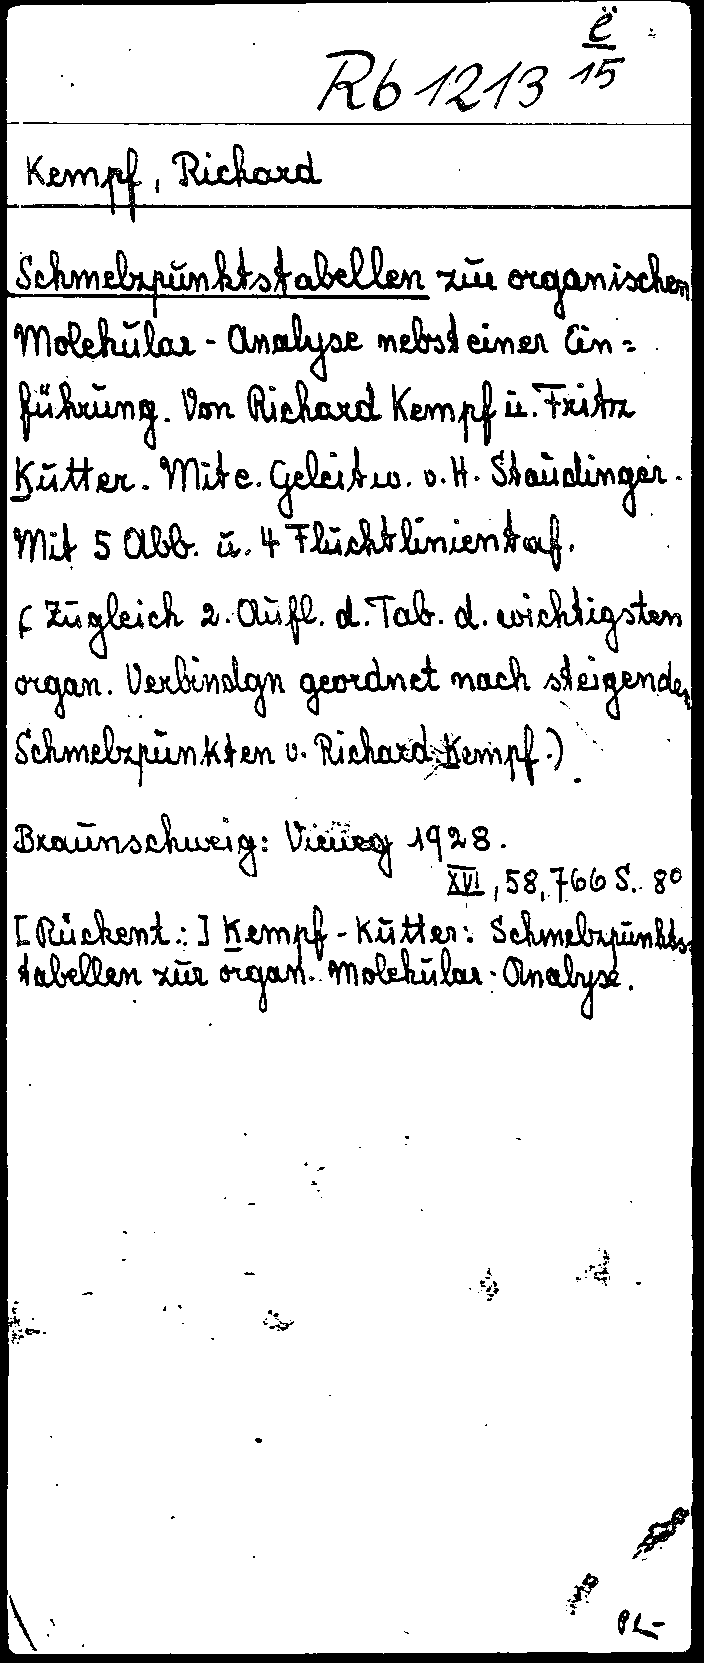 Rb 1213 ë/15
Kempf, Richard
Schmelzpunktstabellen zur organischen
Molekular-Analyse nebst einer Ein=
führung. Von Richard Kempf u. Fritz
Kutter. Mit e. Geleitw. v. H. Staudinger.
Mit 5 Abb. u. 4 Fluchtlinientaf.
(Zugleich 2. Aufl. d. Tab. d. wichtigsten
organ. Verbindgn geordnet nach steigenden
Schmelzpunkten v. Richard Kempf.)
Braunschweig: Vieweg 1928.
XVI, 58, 766 S. 8°
[Rückent.:] Kempf-Kutter: Schmelzpunkts=
tabellen zur organ. Molekular-Analyse.